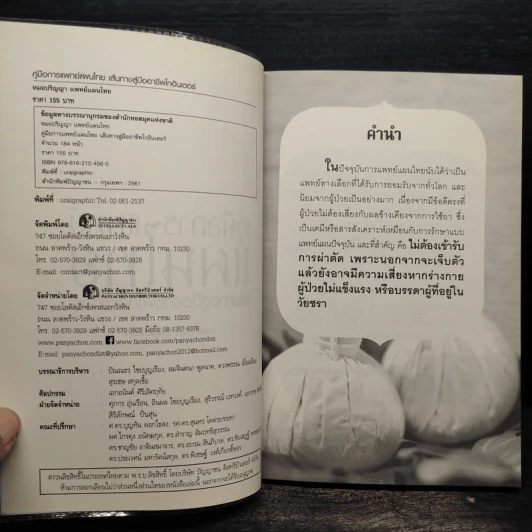 คู่มือการแพทย์แผนไทย เส้นทางสู่มืออาชีพโกอินเตอร์
หมอปริญญา แพทย์แผนไทย
ราคา 155 บาท
ข้อมูลทางบรรณานุกรมของสำนักหอสมุดแห่งชาติ
หมอปริญญา แพทย์แผนไทย
คู่มือการแพทย์แผนไทย เส้นทางสู่มืออาชีพโกอินเตอร์
จำนวน 184 หน้า
ราคา 155 บาท
ISBN 978-616-210-456-5
พิมพ์ที่ : uraigraphic
สำนักพิมพ์ปัญญาชน -- กรุงเทพฯ : 2561
พิมพ์ที่ : uraigraphic Tel. 02-961-2137
จัดพิมพ์โดย : สำนักพิมพ์ปัญญาชน
INTELLECTUALS
747 ซอยโลตัสเอ็กซ์เพรสลาดวังหิน
ถนน ลาดพร้าว-วังหิน แขวง / เขต ลาดพร้าว กทม. 10230
โทร. 02-570-3929 แฟกซ์ 02-570-3928
E-mail : contact@panyachon.com
จัดจำหน่ายโดย : บริษัท ปัญญาชน ดิสทริบิวเตอร์ จำกัด
PANYACHON DISTRIBUTOR CO.,LTD
747 ซอยโลตัสเอ็กซ์เพรสลาดวังหิน
ถนน ลาดพร้าว-วังหิน แขวง / เขต ลาดพร้าว กทม. 10230
โทร. 02-570-3929 แฟกซ์ 02-570-3928 มือถือ 08-1357-6378
www.panyachon.com www.facebook.com/panyachondist
E-mail : panyachondist@yahoo.com, panyachon2012@hotmail.com
บรรณาธิการบริหาร : ปัณณธร ไชยบุญเรือง, สมจินตนา พูลนาค,
สุรเชษ สกุลเชื้อ
ศิลปกรรม : เอกอนันต์ ศิริเลิศฤทัย
ฝ่ายจัดจำหน่าย : ศุภกร อุ่นเรือน,
สิริลักษณ์ ปิ่นสุ่น
คณะที่ปรึกษา :
คำนำ
ในปัจจุบันการแพทย์แผนไทยนับได้ว่าเป็น
แพทย์ทางเลือกที่ได้รับการยอมรับจากทั่วโลก และ
นิยมจากผู้ป่วยเป็นอย่างมาก เนื่องจากมีข้อดีตรงที่
ผู้ป่วยไม่ต้องเสี่ยงกับผลข้างเคียงจากการใช้ยา ซึ่ง
เป็นเคมีหรือสารสังเคราะห์เหมือนกับการรักษาแบบ
แพทย์แผนปัจจุบัน และที่สำคัญ คือ ไม่ต้องเข้ารับ
การผ่าตัด เพราะนอกจากจะเจ็บตัว
แล้วยังอาจมีความเสี่ยงหากร่างกาย
ผู้ป่วยไม่แข็งแรง หรือบรรดาผู้ที่อยู่ใน
วัยชรา